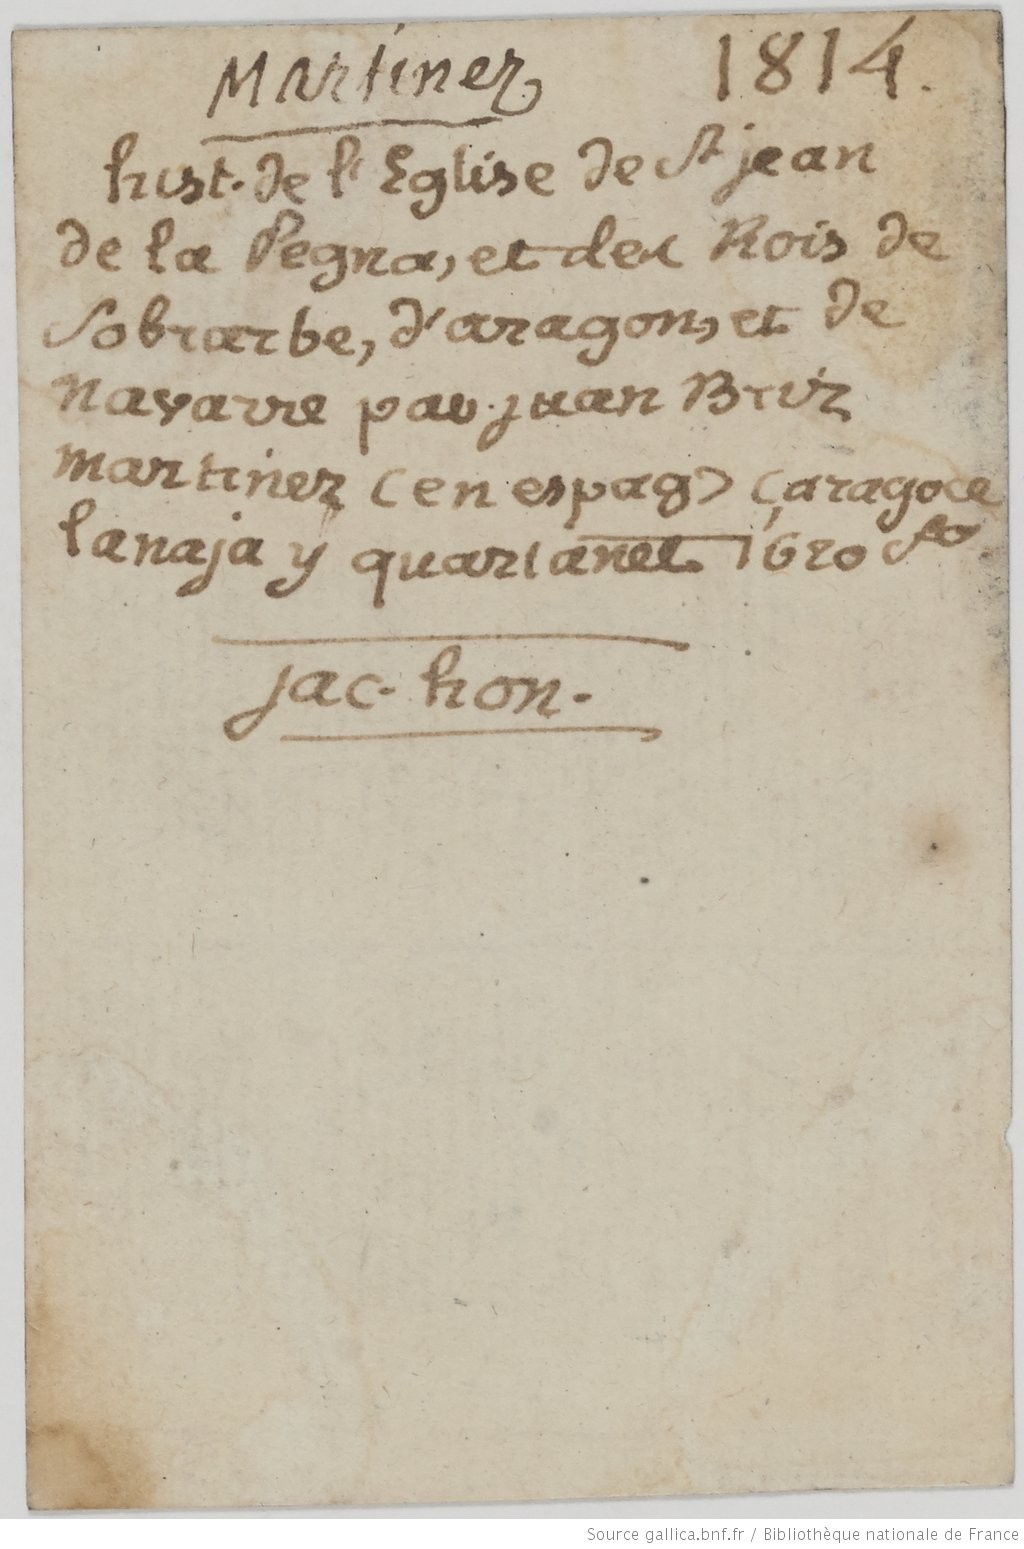 Martinez 1814.
hist. de l'Eglise de St jean
de la Pegna, et des Rois de
Sobrarbe, d'aragon, et de
Navarre par juan Briz
martinez (en espag) Çaragoce
lanaja y quartanet 1620 fo
jac. hon.
Source gallica.bnf.fr / Bibliothèque nationale de France